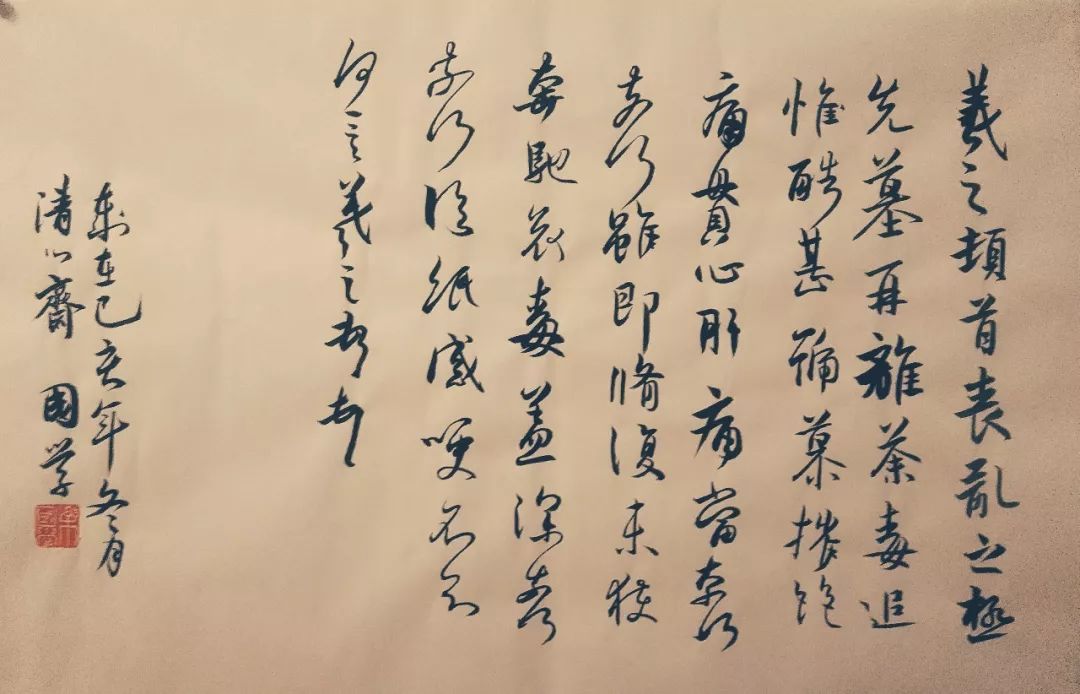 羲之頓首喪亂之極
先墓再離荼毒追
惟酷甚號慕摧絕
痛貫心肝痛當奈何
奈何雖即脩復未獲
奔馳哀毒益深奈何
奈何臨紙感哽不知
何言羲之頓首頓首
在己亥年冬月
清心齋 國学